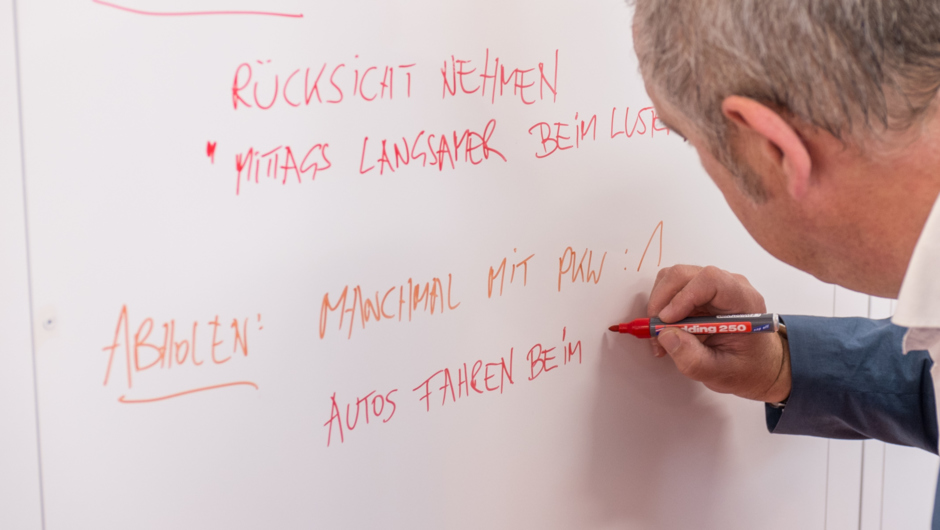 RÜCKSICHT NEHMEN
MITTAGS LANGSAMER BEIM
ABHOLEN: MANCHMAL MIT PKW: 1
AUTOS FAHREN BEIM
edding 250